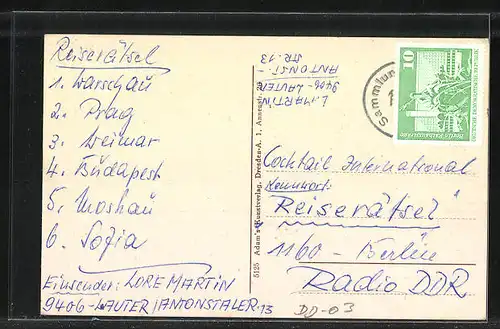 Reiserätsel
1. Warschau
2. Prag
3. Weimar
4. Budapest
5. Moskau
6. Sofia
Einsender: LORE MARTIN
9406-LAUTER/ANTONSTALER-13
L. MARTIN
9406-LAUTER
ANTONST.-
STR.13
5125 Adam's Kunstverlag, Dresden-A. 1,
Sammlun
10
Cocktail International
Kennwort:
"Reiserätsel"
1160-Berlin
Radio DDR
DD-03